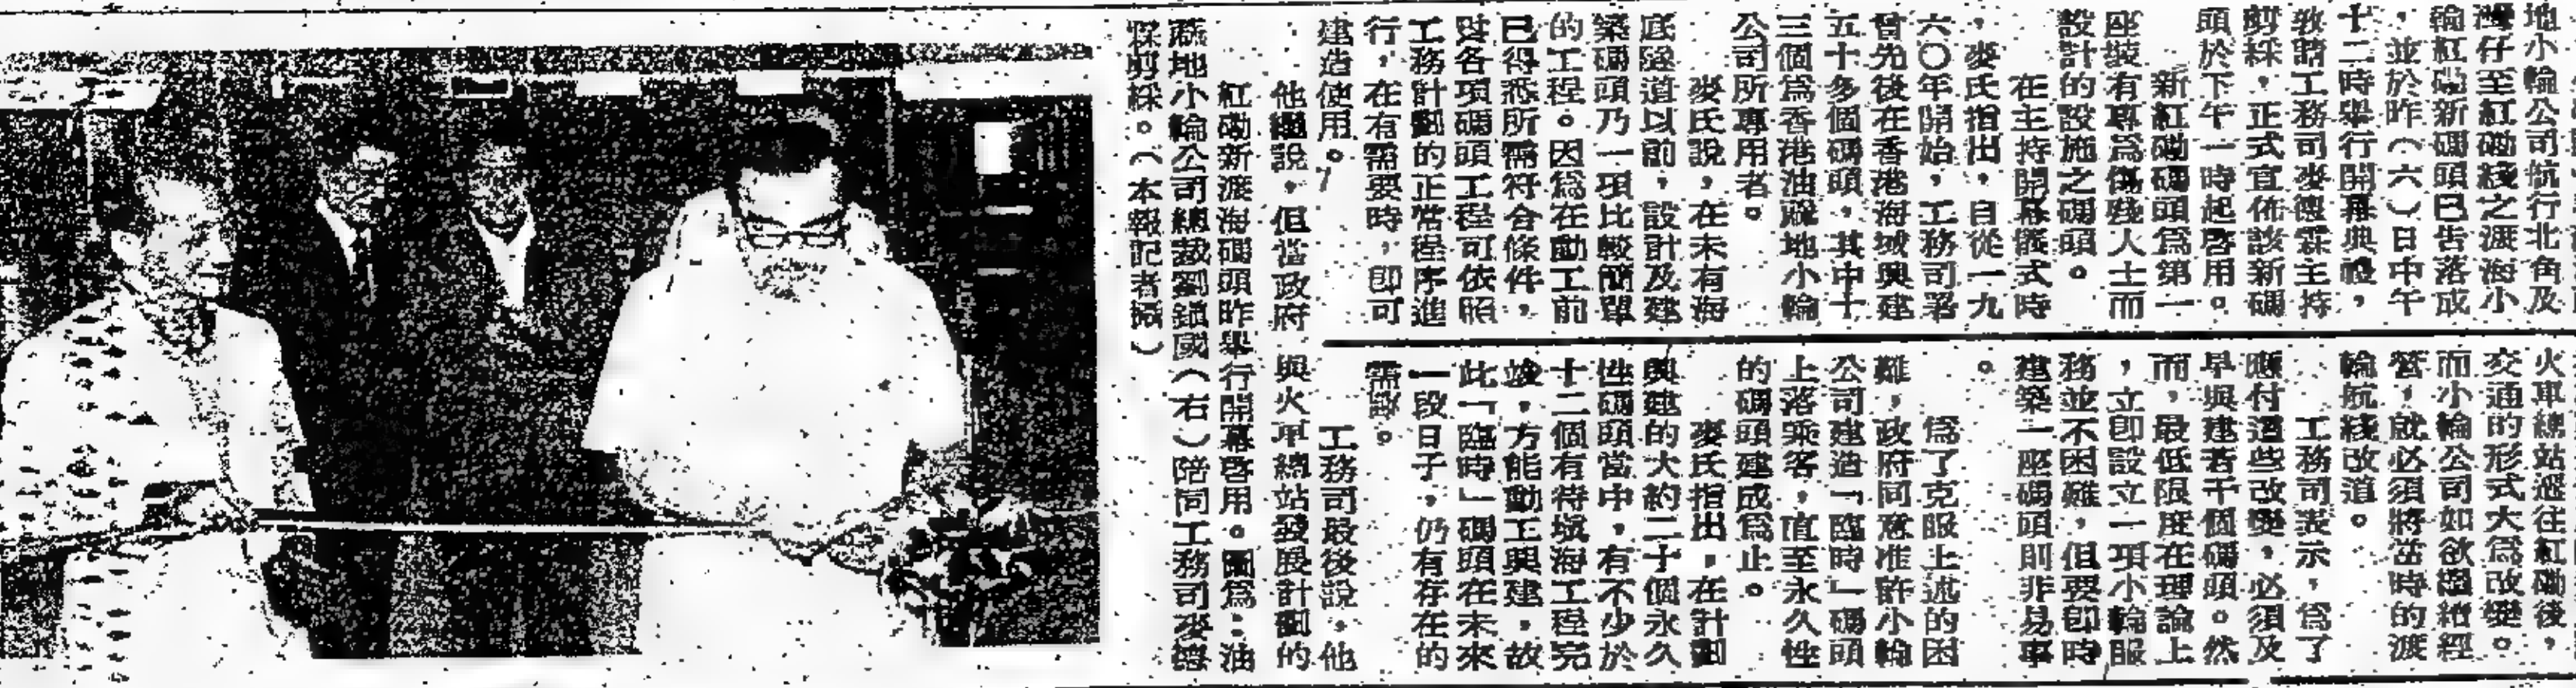 地小輪公司航行北角及
灣仔至紅磡綫之渡海小
輪紅磡新碼頭已告落成
，並於昨（六）日中午
十二時舉行開幕典禮，
敦請工務司麥德霖主持
剪綵，正式宣佈該新碼
頭於下午一時起啓用。
新紅磡碼頭爲第一
座裝有專爲傷殘人士而
設計的設施之碼頭。
在主持開幕儀式時
，麥氏指出，自從一九
六〇年開始，工務司署
曾先後在香港海域興建
五十多個碼頭，其中十
三個爲香港油蔴地小輪
公司所專用者。
麥氏說，在未有海
底隧道以前，設計及建
築碼頭乃一項比較簡單
的工程。因爲在動工前
已得悉所需符合條件，
與各項碼頭工程可依照
工務計劃的正常程序進
行，在有需要時，即可
建造使用。
他繼說，但當政府與火車總站發展計劃的
火車總站遷往紅磡後，
交通的形式大爲改變。
而小輪公司如欲繼續經
營，就必須將當時的渡
輪航綫改道。
工務司表示，爲了
應付這些改變，必須及
早興建若干個碼頭。然
而，最低限度在理論上
，立即設立一項小輪服
務並不困難，但要即時
建築一座碼頭則非易事
。
爲了克服上述的困
難，政府同意准許小輪
公司建造「臨時」碼頭
上落乘客，直至永久性
的碼頭建成爲止。
麥氏指出，在計劃
興建的大約二十個永久
性碼頭當中，有不少於
十二個有待填海工程完
竣，方能動工興建，故
此「臨時」碼頭在未來
一段日子，仍有存在的
需要。
工務司最後說，他
紅磡新渡海碼頭昨舉行開幕啓用。圖爲：油
蔴地小輪公司總裁劉鎮國（右）陪同工務司麥德
霖剪綵。（本報記者攝）